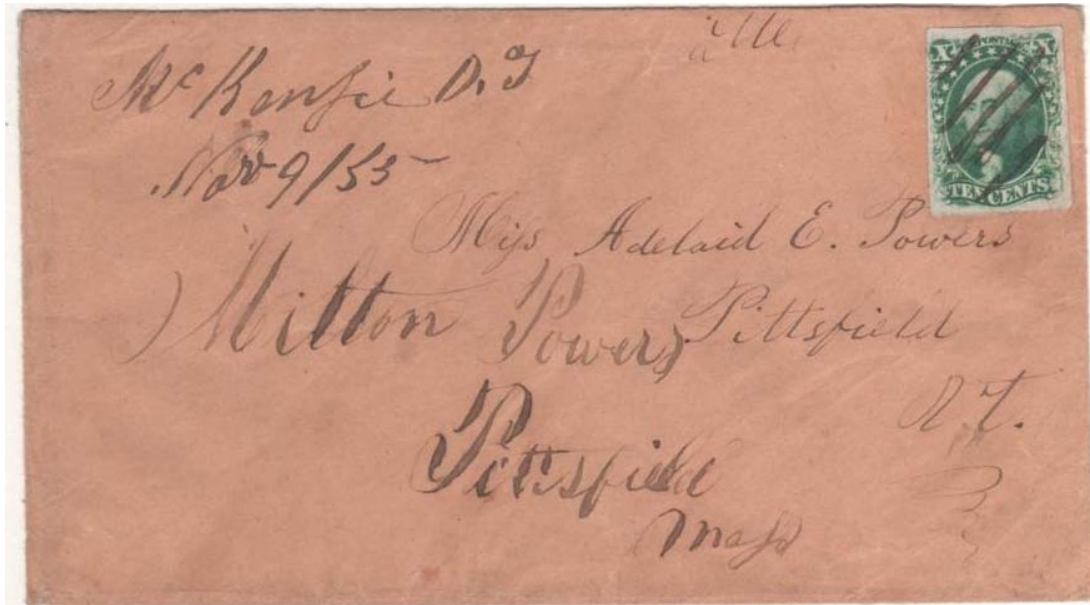 X U.S. POSTAGE X
Mc Kenzie O.T
Nov 9/55
TEN CENTS
Miss Adelaid E. Powers
Pittsfield
Milton Powers
Pittsfield
Mass